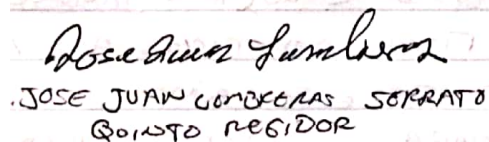 Jose Juan Lumbreras
JOSE JUAN LUMBRERAS SERRATO
QUINTO REGIDOR